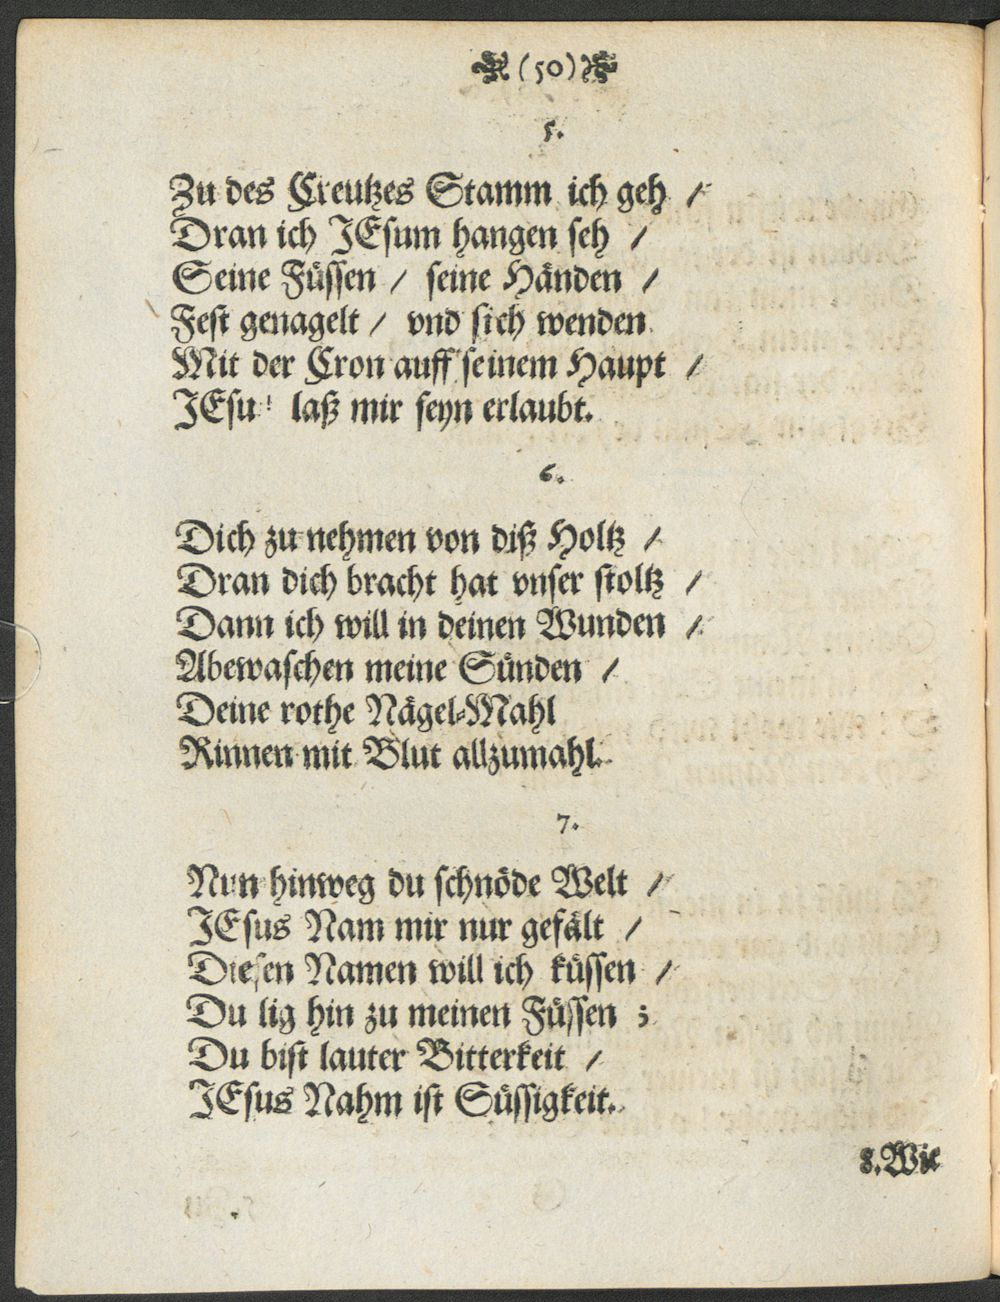 (50)
5.
Zu des Creutzes Stamm ich geh /
Dran ich JEsum hangen seh /
Seine Füssen / seine Händen /
Fest genagelt / vnd sich wenden
Mit der Cron auff seinem Haupt /
JEsu! laß mir seyn erlaubt.
6.
Dich zu nehmen von diß Holtz /
Dran dich bracht hat vnser stoltz /
Dann ich will in deinen Wunden /
Abewaschen meine Sünden /
Deine rothe Nägel-Mahl
Rinnen mit Blut allzumahl.
7.
Nun hinweg du schnöde Welt /
JEsus Nam mir nur gefält /
Diesen Namen will ich küssen /
Du lig hin zu meinen Füssen ;
Du bist lauter Bitterkeit /
JEsus Nahm ist Süssigkeit.
8. Wie